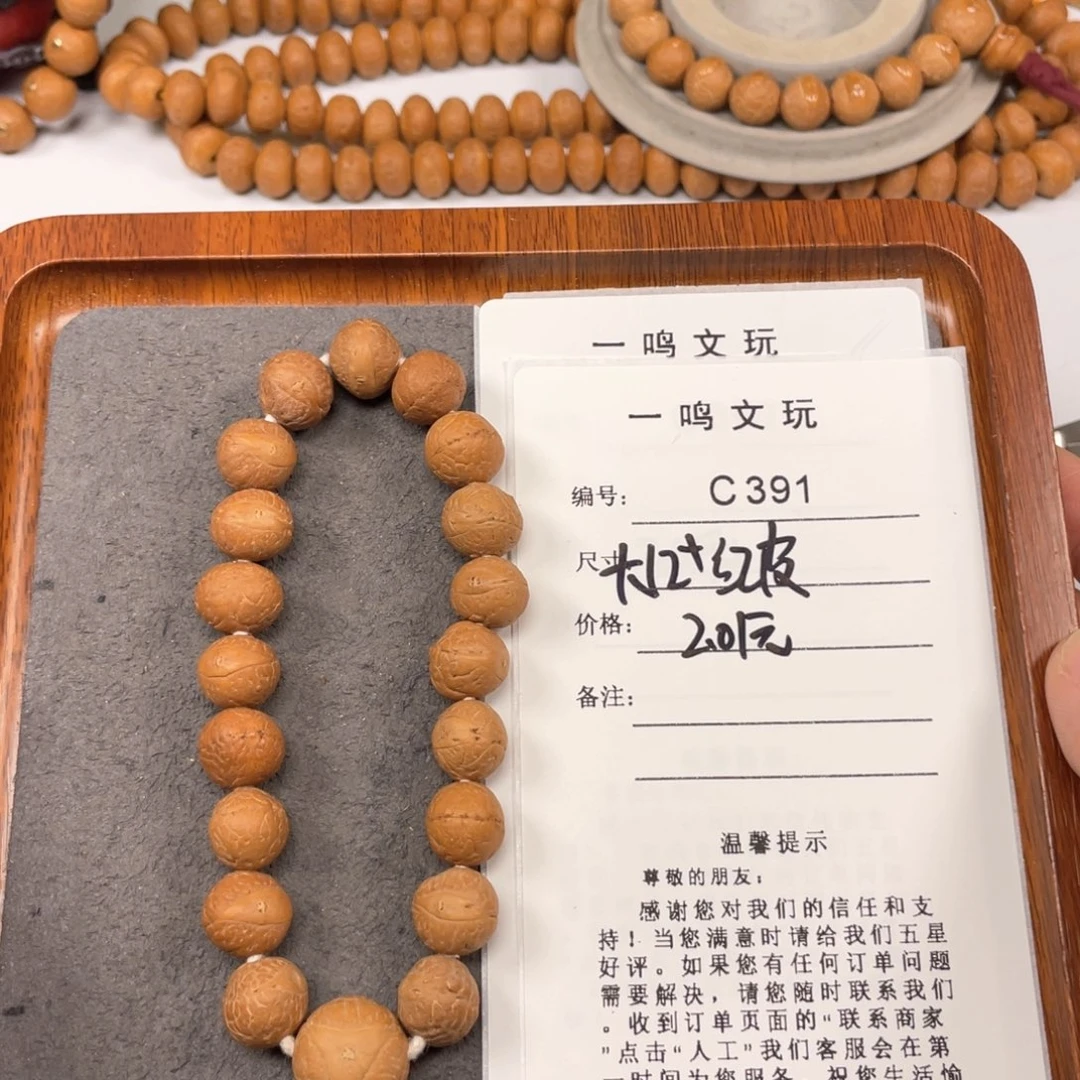 一鸣文玩
一鸣文玩
编号: C391
尺寸 大12+红皮
价格: 201元
备注:
温馨提示
尊敬的朋友:
感谢您对我们的信任和支
持!当您满意时请给我们五星
好评。如果您有任何订单问题
需要解决,请您随时联系我们
。收到订单页面的“联系商家
”点击“人工”我们客服会在第
一时间为您服务。祝您生活愉